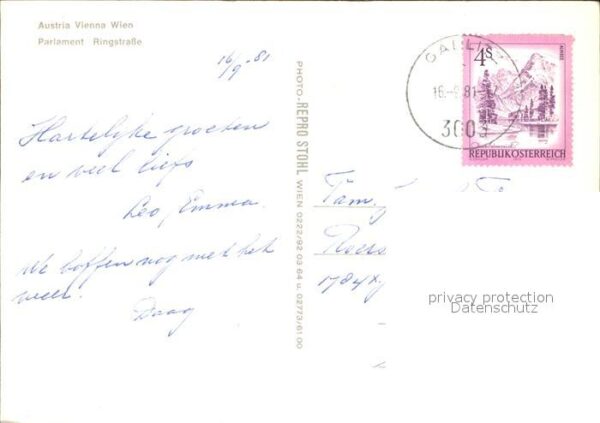 Austria Vienna Wien
Parlament Ringstraße
16/9-81
Hartelijke groeten
en veel liefs
Leo, Emma.
We boffen nog met het
weer.
Daag
PHOTO-REPRO STOHL WIEN 0222/92 03 64 u. 02773/61 00
16.-9.81
3003
4S
REPUBLIK ÖSTERREICH
Fam.
privacy protection
Datenschutz